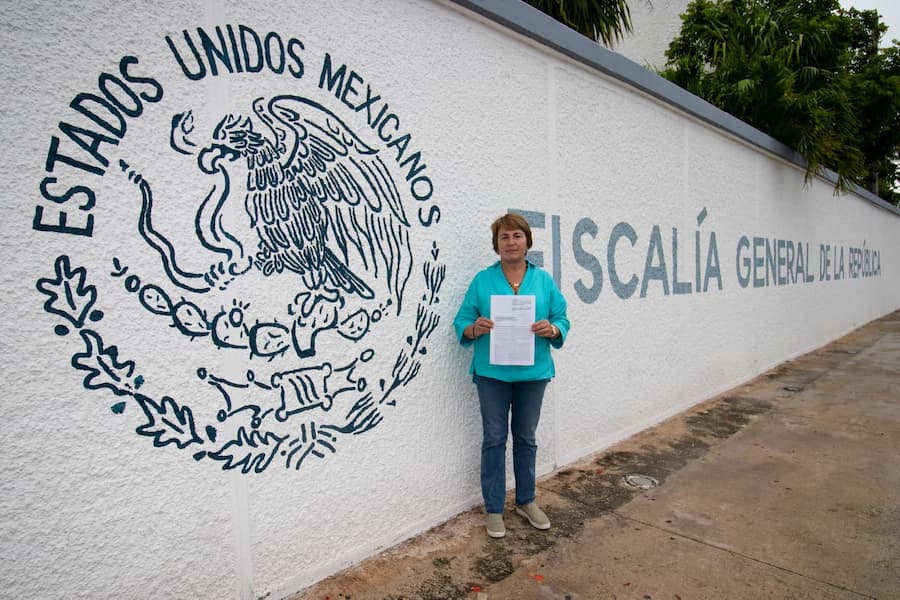 ESTADOS UNIDOS MEXICANOS
FISCALÍA GENERAL DE LA REPÚBLICA